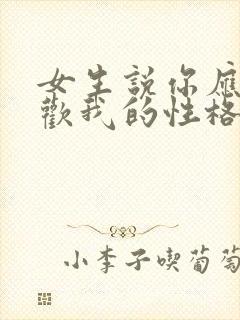 女生說你應
歡我的性格
小李子喫葡萄